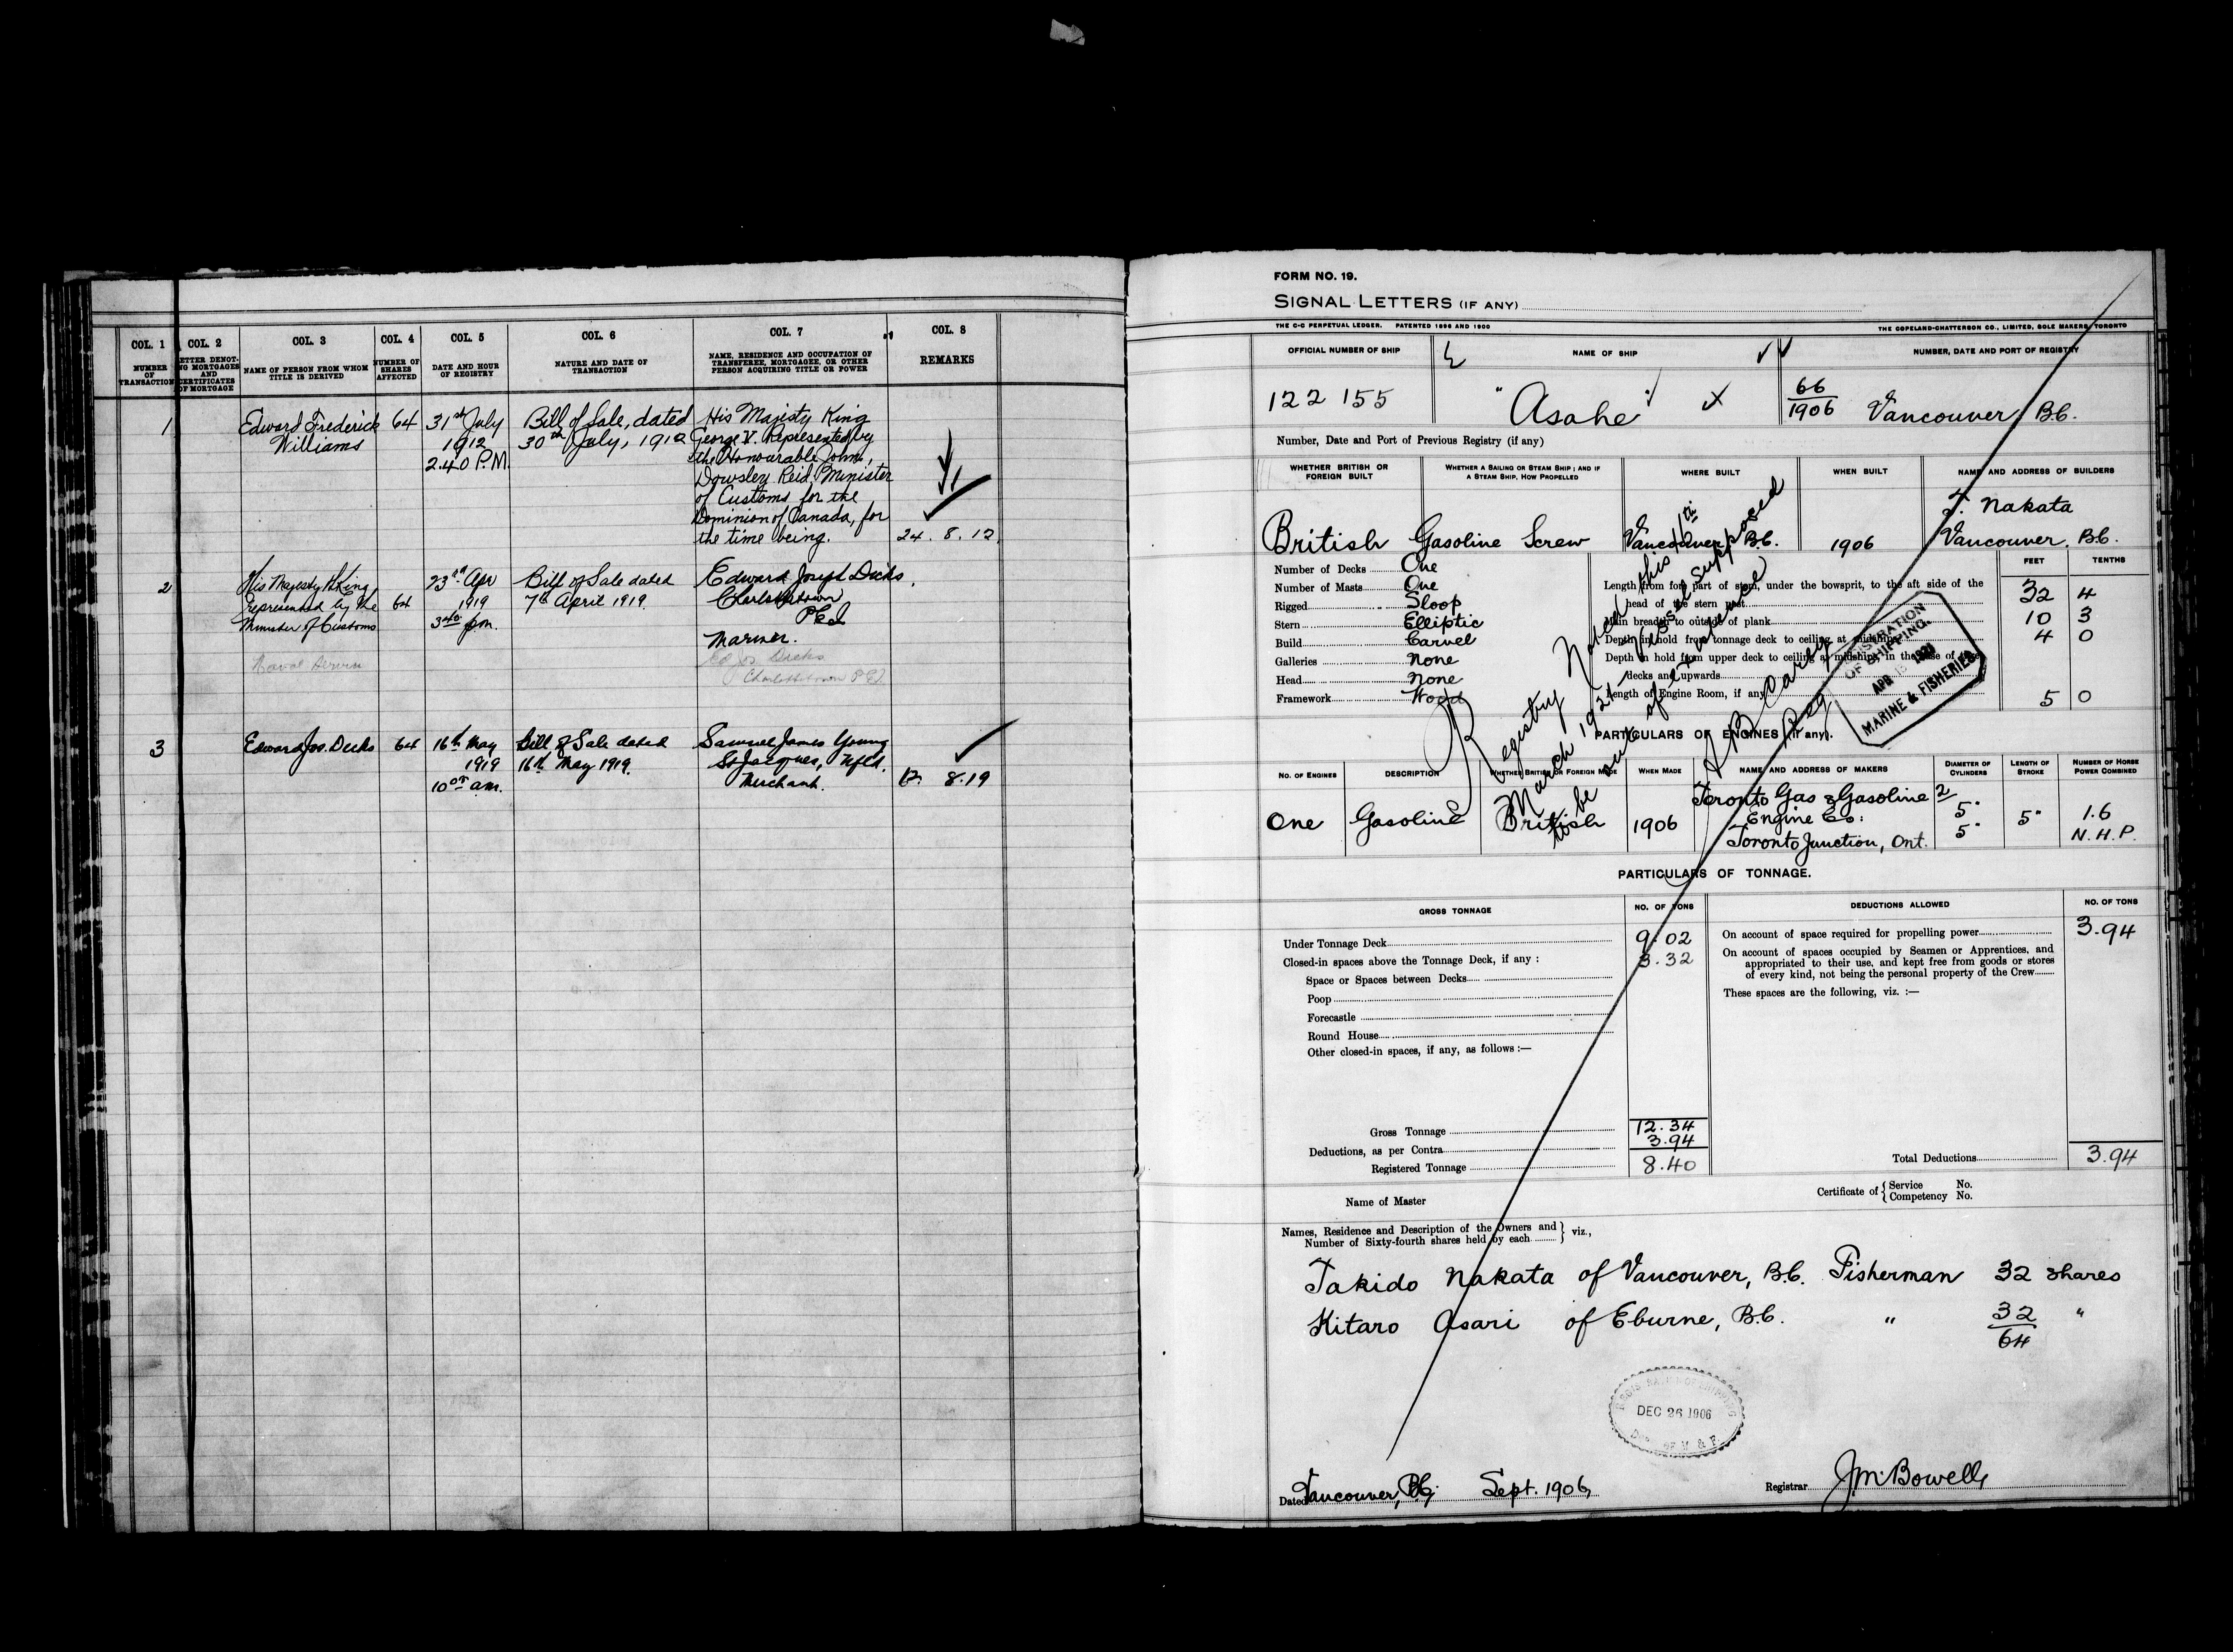 COL. 1
NUMBER
OF
TRANSACTION
COL. 2
LETTER DENOT-
ING MORTGAGES
AND
CERTIFICATES
OF MORTGAGE
COL. 3
NAME OF PERSON FROM WHOM
TITLE IS DERIVED
COL. 4
NUMBER OF
SHARES
AFFECTED
COL. 5
DATE AND HOUR
OF REGISTRY
COL. 6
NATURE AND DATE OF
TRANSACTION
COL. 7
NAME, RESIDENCE AND OCCUPATION OF
TRANSFEREE, MORTGAGEE, OR OTHER
PERSON ACQUIRING TITLE OR POWER
COL. 8
REMARKS
1
Edward Frederick
Williams
64
31st July
1912
2.40 P.M.
Bill of Sale, dated
30th July, 1912
His Majesty King
George V. Represented by
the Honourable John,
Dowsley Reid, Minister
of Customs for the
Dominion of Canada, for
the time being.
24. 8. 12
2
His Majesty the King
represented by the
Minister of Customs
64
23rd Apr
1919
3.40 pm.
Bill of Sale dated
7th April 1919.
Edward Joseph Dicks
Charlottetown
PEI
Mariner.
Ed Jos. Dicks
Charlottetown P.E.I.
3
Edward Jos. Dicks
64
16th May
1919
10 am.
Bill of Sale dated
16th May 1919.
Samuel James Young
St Jacques, Nfld.
Merchant.
12. 8.19
FORM NO. 19.
SIGNAL LETTERS (IF ANY)
THE C-C PERPETUAL LEDGER. PATENTED 1896 AND 1900
THE COPELAND-CHATTERSON CO., LIMITED, SOLE MAKERS, TORONTO
OFFICIAL NUMBER OF SHIP
NAME OF SHIP
NUMBER, DATE AND PORT OF REGISTRY
122 155
"Asahe"
66
1906
Vancouver, B.C.
Number, Date and Port of Previous Registry (if any)
WHETHER BRITISH OR
FOREIGN BUILT
WHETHER A SAILING OR STEAM SHIP; AND IF
A STEAM SHIP, HOW PROPELLED
WHERE BUILT
WHEN BUILT
NAME AND ADDRESS OF BUILDERS
British
Gasoline Screw
Vancouver, B.C.
1906
Nakata
Vancouver, B.C.
Number of Decks One
Number of Masts One
Rigged Sloop
Stern Elliptic
Build Carvel
Galleries None
Head None
Framework Wood
FEET
TENTHS
Length from fore part of stem, under the bowsprit, to the aft side of the
head of the stern post 32 4
Main breadth to outside of plank 10 3
Depth in hold from tonnage deck to ceiling at midships 4 0
Depth in hold from upper deck to ceiling at midships, in the case of three
decks and upwards
Length of Engine Room, if any 5 0
Registry Noted this
March 1921 Vessel supposed
to be out of existence
REGISTRATION
OF SHIPPING.
APR
MARINE & FISHERIES
PARTICULARS OF ENGINES (if any).
No. OF ENGINES
DESCRIPTION
WHETHER BRITISH OR FOREIGN MADE
WHEN MADE
NAME AND ADDRESS OF MAKERS
DIAMETER OF
CYLINDERS
LENGTH OF
STROKE
NUMBER OF HORSE
POWER COMBINED
One
Gasoline
British
1906
Toronto Gas & Gasoline
Engine Co:
Toronto Junction, Ont.
2
5"
5"
5"
1.6
N.H.P.
PARTICULARS OF TONNAGE.
GROSS TONNAGE
NO. OF TONS
DEDUCTIONS ALLOWED
NO. OF TONS
Under Tonnage Deck 9.02
Closed-in spaces above the Tonnage Deck, if any : 3.32
Space or Spaces between Decks
Poop
Forecastle
Round House
Other closed-in spaces, if any, as follows :—
Gross Tonnage 12.34
Deductions, as per Contra 3.94
Registered Tonnage 8.40
On account of space required for propelling power 3.94
On account of spaces occupied by Seamen or Apprentices, and
appropriated to their use, and kept free from goods or stores
of every kind, not being the personal property of the Crew
These spaces are the following, viz. :—
Total Deductions 3.94
Name of Master
Certificate of { Service No.
Competency No.
Names, Residence and Description of the Owners and
Number of Sixty-fourth shares held by each } viz.,
Takido Nakata of Vancouver, B.C. Fisherman 32 shares
Kitaro Asari of Eburne, B.C. " 32 "
64
DEC 26 1906
Dated Vancouver, B.C. Sept. 1906,
Registrar J.M. Bowell